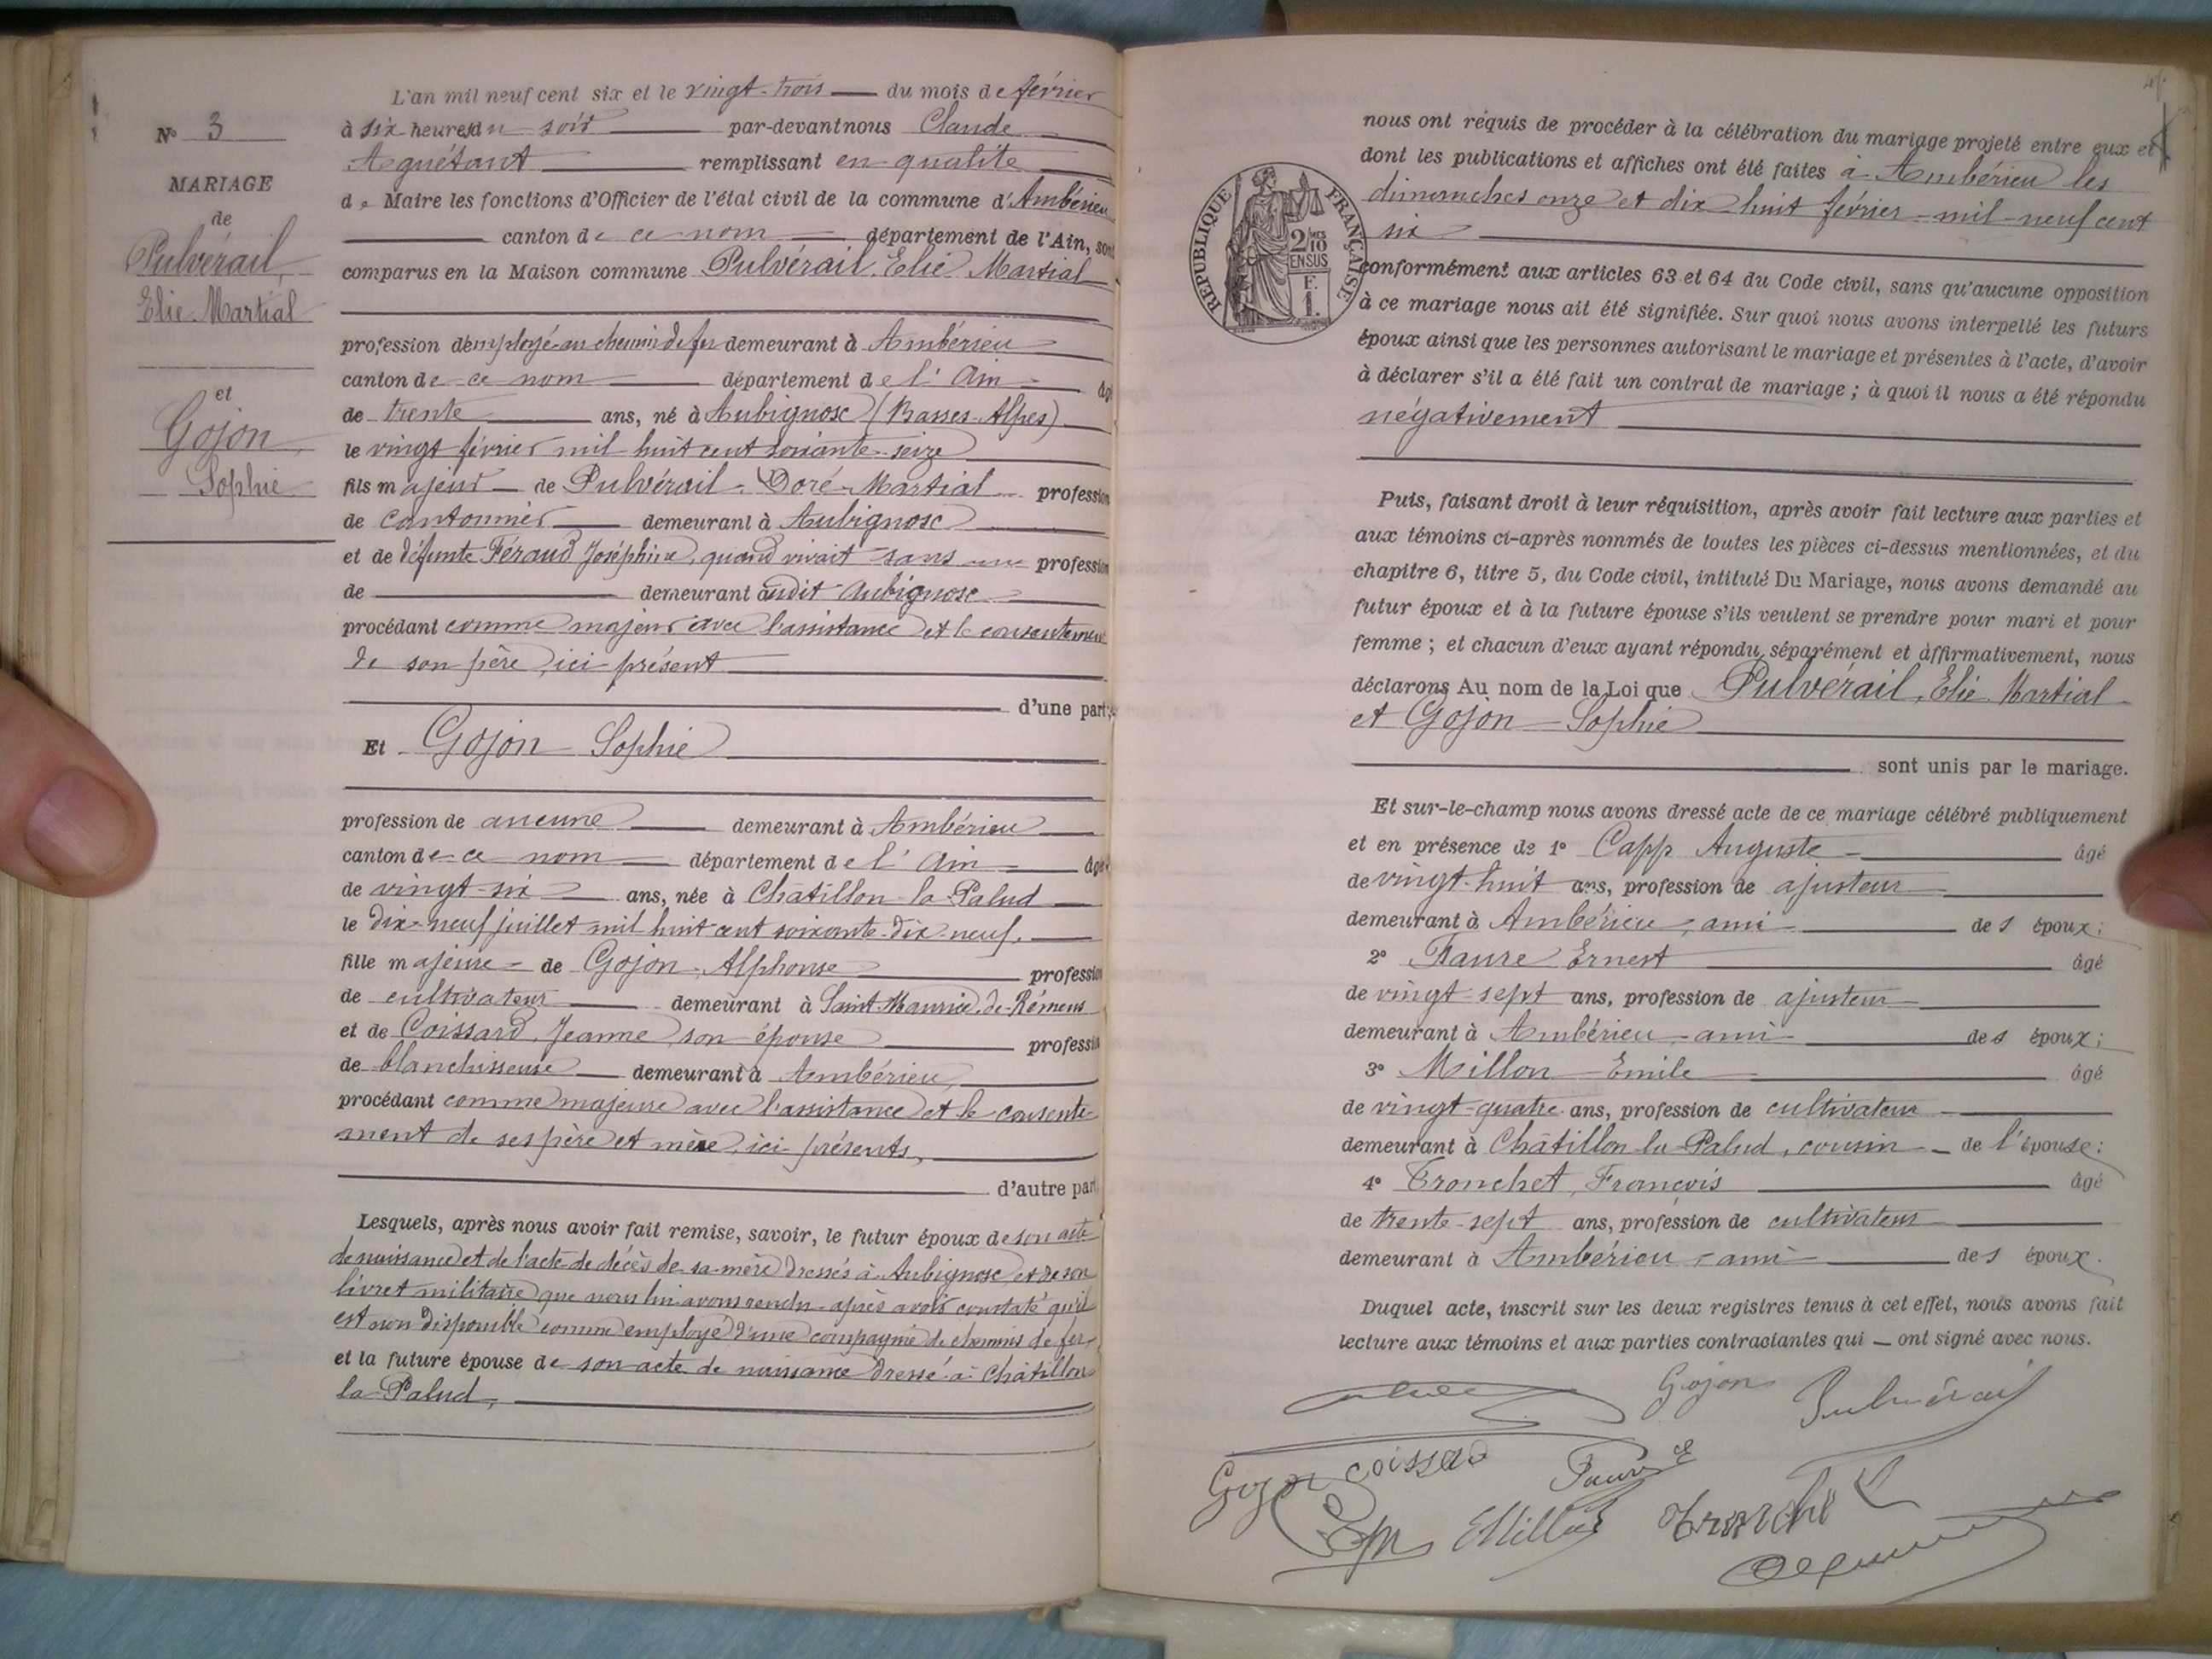 N° 3
MARIAGE
de
Pulvérail,
Elie Martial
et
Gojon,
Sophie
L'an mil neuf cent six et le vingt-trois du mois de février
à six heures du soir par-devant nous Claude
Aguétant remplissant en qualité
de Maire les fonctions d'Officier de l'état civil de la commune d'Ambérieu
canton de ce nom département de l'Ain, sont
comparus en la Maison commune Pulvérail, Elie Martial
profession d'employé au chemin de fer demeurant à Ambérieu
canton de ce nom département de l'Ain âgé
de trente ans, né à Aubignosc (Basses-Alpes)
le vingt février mil huit cent soixante-seize
fils majeur de Pulvérail Doré Martial profession
de cantonnier demeurant à Aubignosc
et de défunte Féraud Joséphine, quand vivait sans profession
de demeurant audit Aubignosc
procédant comme majeur avec l'assistance et le consentement
de son père, ici présent
d'une part;
Et Gojon Sophie
profession de aucune demeurant à Ambérieu
canton de ce nom département de l'Ain âgée
de vingt-six ans, née à Châtillon-la-Palud
le dix-neuf juillet mil huit cent soixante-dix-neuf,
fille majeure de Gojon, Alphonse profession
de cultivateur demeurant à Saint-Maurice-de-Rémens
et de Coissard, Jeanne, son épouse profession
de blanchisseuse demeurant à Ambérieu,
procédant comme majeure avec l'assistance et le consente-
ment de ses père et mère, ici présents,
d'autre part.
Lesquels, après nous avoir fait remise, savoir, le futur époux de son acte
de naissance et de l'acte de décès de sa mère dressés à Aubignosc, et de son
livret militaire que nous lui avons rendu après avoir constaté qu'il
est non disponible comme employé d'une compagnie de chemins de fer,
et la future épouse de son acte de naissance dressé à Châtillon
la-Palud,
RÉPUBLIQUE FRANÇAISE
2/10
EN SUS
F.
1.
nous ont requis de procéder à la célébration du mariage projeté entre eux et
dont les publications et affiches ont été faites à Ambérieu les
dimanches onze et dix-huit février mil neuf cent
six
conformément aux articles 63 et 64 du Code civil, sans qu'aucune opposition
à ce mariage nous ait été signifiée. Sur quoi nous avons interpellé les futurs
époux ainsi que les personnes autorisant le mariage et présentes à l'acte, d'avoir
à déclarer s'il a été fait un contrat de mariage ; à quoi il nous a été répondu
négativement
Puis, faisant droit à leur réquisition, après avoir fait lecture aux parties et
aux témoins ci-après nommés de toutes les pièces ci-dessus mentionnées, et du
chapitre 6, titre 5, du Code civil, intitulé Du Mariage, nous avons demandé au
futur époux et à la future épouse s'ils veulent se prendre pour mari et pour
femme ; et chacun d'eux ayant répondu séparément et affirmativement, nous
déclarons Au nom de la Loi que Pulvérail, Elie Martial
et Gojon Sophie
sont unis par le mariage.
Et sur-le-champ nous avons dressé acte de ce mariage célébré publiquement
et en présence de 1° Capp Auguste âgé
de vingt-huit ans, profession de ajusteur
demeurant à Ambérieu, ami des époux;
2° Faure Ernest âgé
de vingt-sept ans, profession de ajusteur
demeurant à Ambérieu, ami des époux;
3° Millon Emile âgé
de vingt-quatre ans, profession de cultivateur
demeurant à Châtillon-la-Palud, cousin de l'épouse;
4° Tronchet, François âgé
de trente-sept ans, profession de cultivateur
demeurant à Ambérieu, ami des époux.
Duquel acte, inscrit sur les deux registres tenus à cet effet, nous avons fait
lecture aux témoins et aux parties contractantes qui ont signé avec nous.
Gojon Pulvérail
Gojon Coissard Faure
Capp E Millon Tronchet